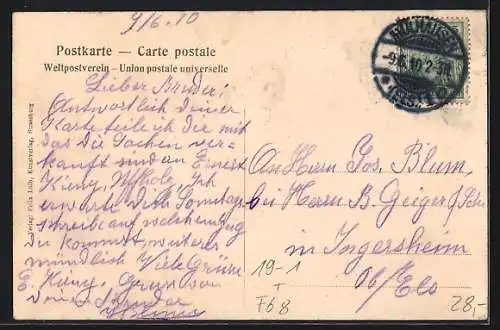 9/6.10
Postkarte — Carte postale
Weltpostverein — Union postale universelle
Lieber Bruder!
Antwortlich deiner
Karte teile ich Dir mit
das die Sachen ver-
kauft sind an Ernest
Kieny, Uffholz, Ich
erwarte Dich Sonntag
schreibe auf welchen Zug
du kommst, weiteres
mündlich Viele Grüsse
E. Kieny, Gruss von
deinem Bruder
An Herrn Jos. Blum,
bei Herrn B. Geiger
in Ingersheim
Ob/Els
19-1
+
F68
28,-
Verlag Felix Luib, Kunstverlag, Strassburg